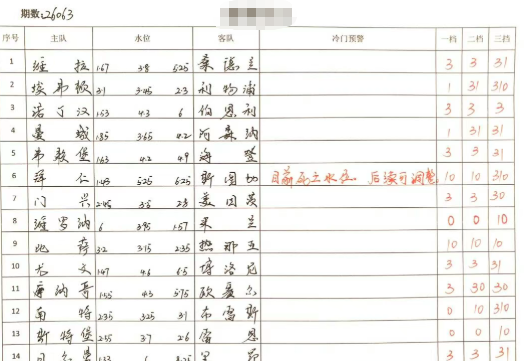 期数:26063
序号 主队 水位 客队 冷门预警 一档 二档 三档
1 维拉 1.67 3.8 5.25 桑德兰 3 3 31
2 埃弗顿 3.1 3.45 2.3 利物浦 1 31 310
3 诺丁汉 1.53 4.3 6 伯恩利 3 3 3
4 曼城 1.85 3.65 4.2 阿森纳 1 31 31
5 弗赖堡 1.63 4.2 4.9 海登 3 3 31
6 拜仁 1.43 5.25 6.25 斯图加 目前死亡水位。后续可调整 10 10 310
7 门兴 2.45 3.5 2.8 美因茨 3 3 30
8 维罗纳 6 3.95 1.57 米兰 0 0 10
9 比萨 3.2 3.15 2.35 热那亚 10 10 10
10 尤文 1.47 4.6 6.5 博洛尼 3 3 31
11 摩纳哥 1.55 4.3 5.75 欧塞尔 3 30 30
12 南特 2.35 3.25 31 布雷斯 0 10 310
13 斯特堡 2.55 3.7 2.6 雷恩 0 0 10
14 3 3 31